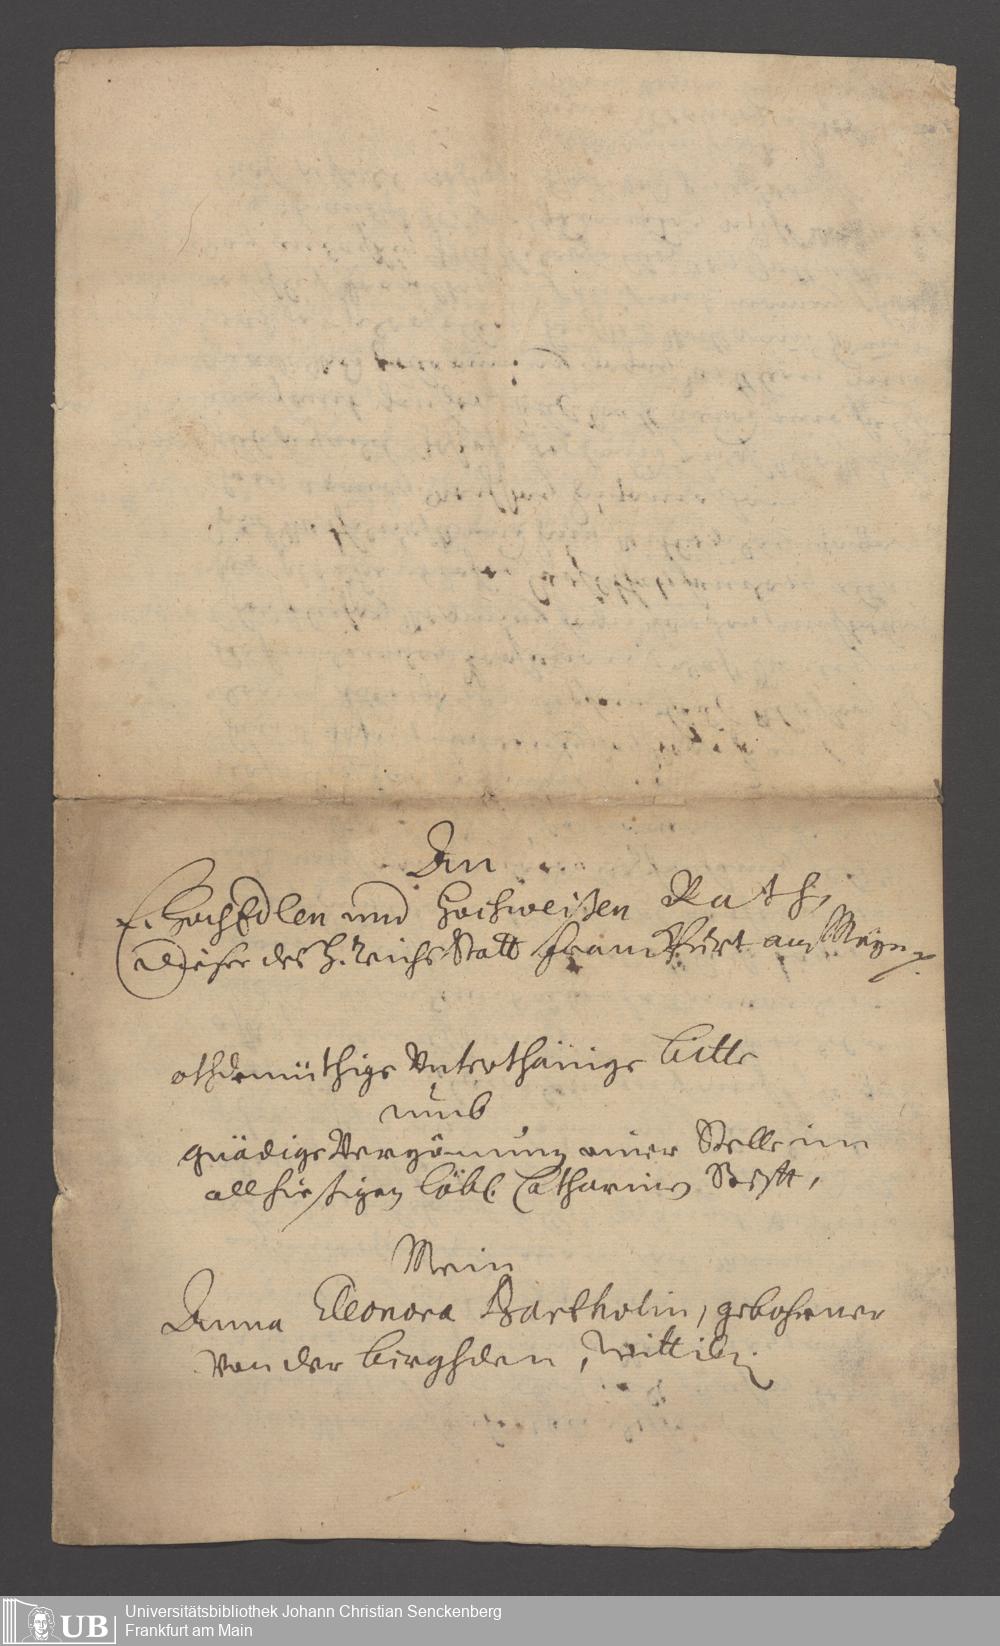 An
E. HochEdlen und Hochweisen Rath,
Dieser des H. Reichs Statt Franckfurt am Mayn
demüthige Unterthänige bitte
umb
gnädige Vergönnung einer Stelle im
allhiesigen löbl. Catharinen Stifft,
Mein
Anna Eleonora Bartholin, gebohrner
Von der birghden, wittib.
UB
Universitätsbibliothek Johann Christian Senckenberg
Frankfurt am Main